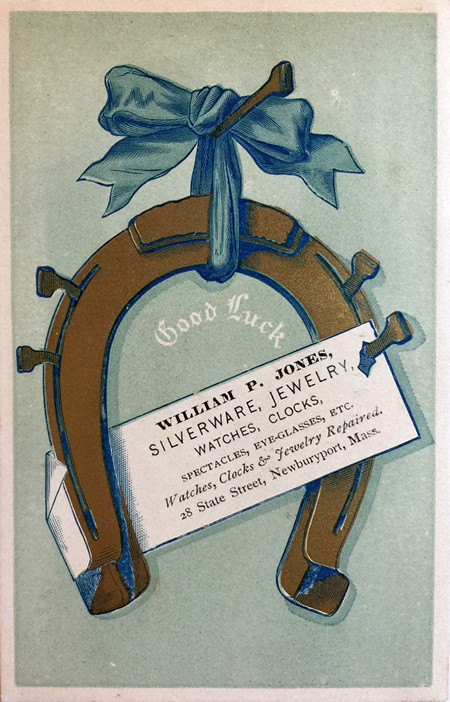 Good Luck
WILLIAM P. JONES,
SILVERWARE, JEWELRY,
WATCHES, CLOCKS,
SPECTACLES, EYE-GLASSES, ETC.
Watches, Clocks & Jewelry Repaired.
28 State Street, Newburyport, Mass.